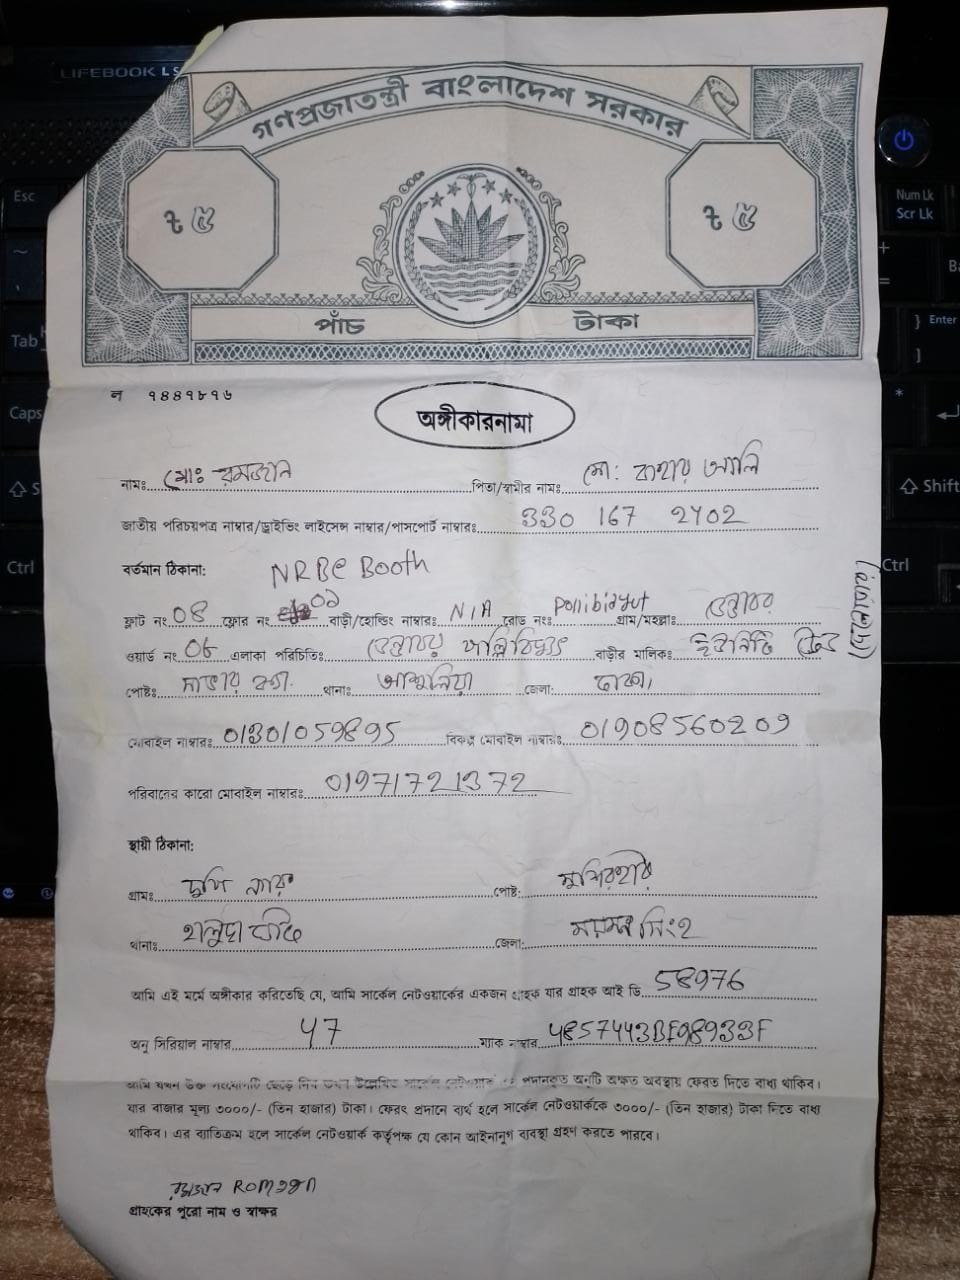 LIFEBOOK LS
গণপ্রজাতন্ত্রী বাংলাদেশ সরকার
৳ ৫ ৳ ৫
পাঁচ টাকা
ল ৭৪৪৭৮৭৬
অঙ্গীকারনামা
নামঃ মোঃ রমজান পিতা/স্বামীর নামঃ মো: বাহার আলি
জাতীয় পরিচয়পত্র নাম্বার/ড্রাইভিং লাইসেন্স নাম্বার/পাসপোর্ট নাম্বারঃ 330 167 2402
বর্তমান ঠিকানা: NRBC Booth
ফ্লাট নং 08 ফ্লোর নং 01 বাড়ী/হোল্ডিং নাম্বারঃ N/A রোড নংঃ Pollibidyut গ্রাম/মহল্লাঃ ডেন্ডাবর
ওয়ার্ড নং 06 এলাকা পরিচিতিঃ ডেন্ডাবর পল্লিবিদ্যুৎ বাড়ীর মালিক:
পোষ্টঃ থানাঃ আশুলিয়া জেলা: ঢাকা।
মোবাইল নাম্বারঃ 01301059895 বিকল্প মোবাইল নাম্বারঃ 01908560209
পরিবারের কারো মোবাইল নাম্বারঃ 01971721372
স্থায়ী ঠিকানা:
গ্রামঃ পোষ্ট: মুন্সিরহাট
থানাঃ জেলা: ময়মনসিংহ
আমি এই মর্মে অঙ্গীকার করিতেছি যে, আমি সার্কেল নেটওয়ার্কের একজন গ্রাহক যার গ্রাহক আই ডি 58976
অনু সিরিয়াল নাম্বার 47 ম্যাক নাম্বার 4857443BF98933F
আমি যখন উক্ত সংযোগটি ছেড়ে দিব তখন উল্লেখিত সার্কেল নেটওয়ার্ক এর প্রদানকৃত অনুটি অক্ষত অবস্থায় ফেরত দিতে বাধ্য থাকিব।
যার বাজার মূল্য ৩০০০/- (তিন হাজার) টাকা। ফেরৎ প্রদানে ব্যর্থ হলে সার্কেল নেটওয়ার্ককে ৩০০০/- (তিন হাজার) টাকা দিতে বাধ্য
থাকিব। এর ব্যতিক্রম হলে সার্কেল নেটওয়ার্ক কর্তৃপক্ষ যে কোন আইনানুগ ব্যবস্থা গ্রহণ করতে পারবে।
রমজান ROMJAN
গ্রাহকের পুরো নাম ও স্বাক্ষর
Esc
Tab
Caps
Ctrl
Num Lk
Scr Lk
Enter
Shift
Ctrl